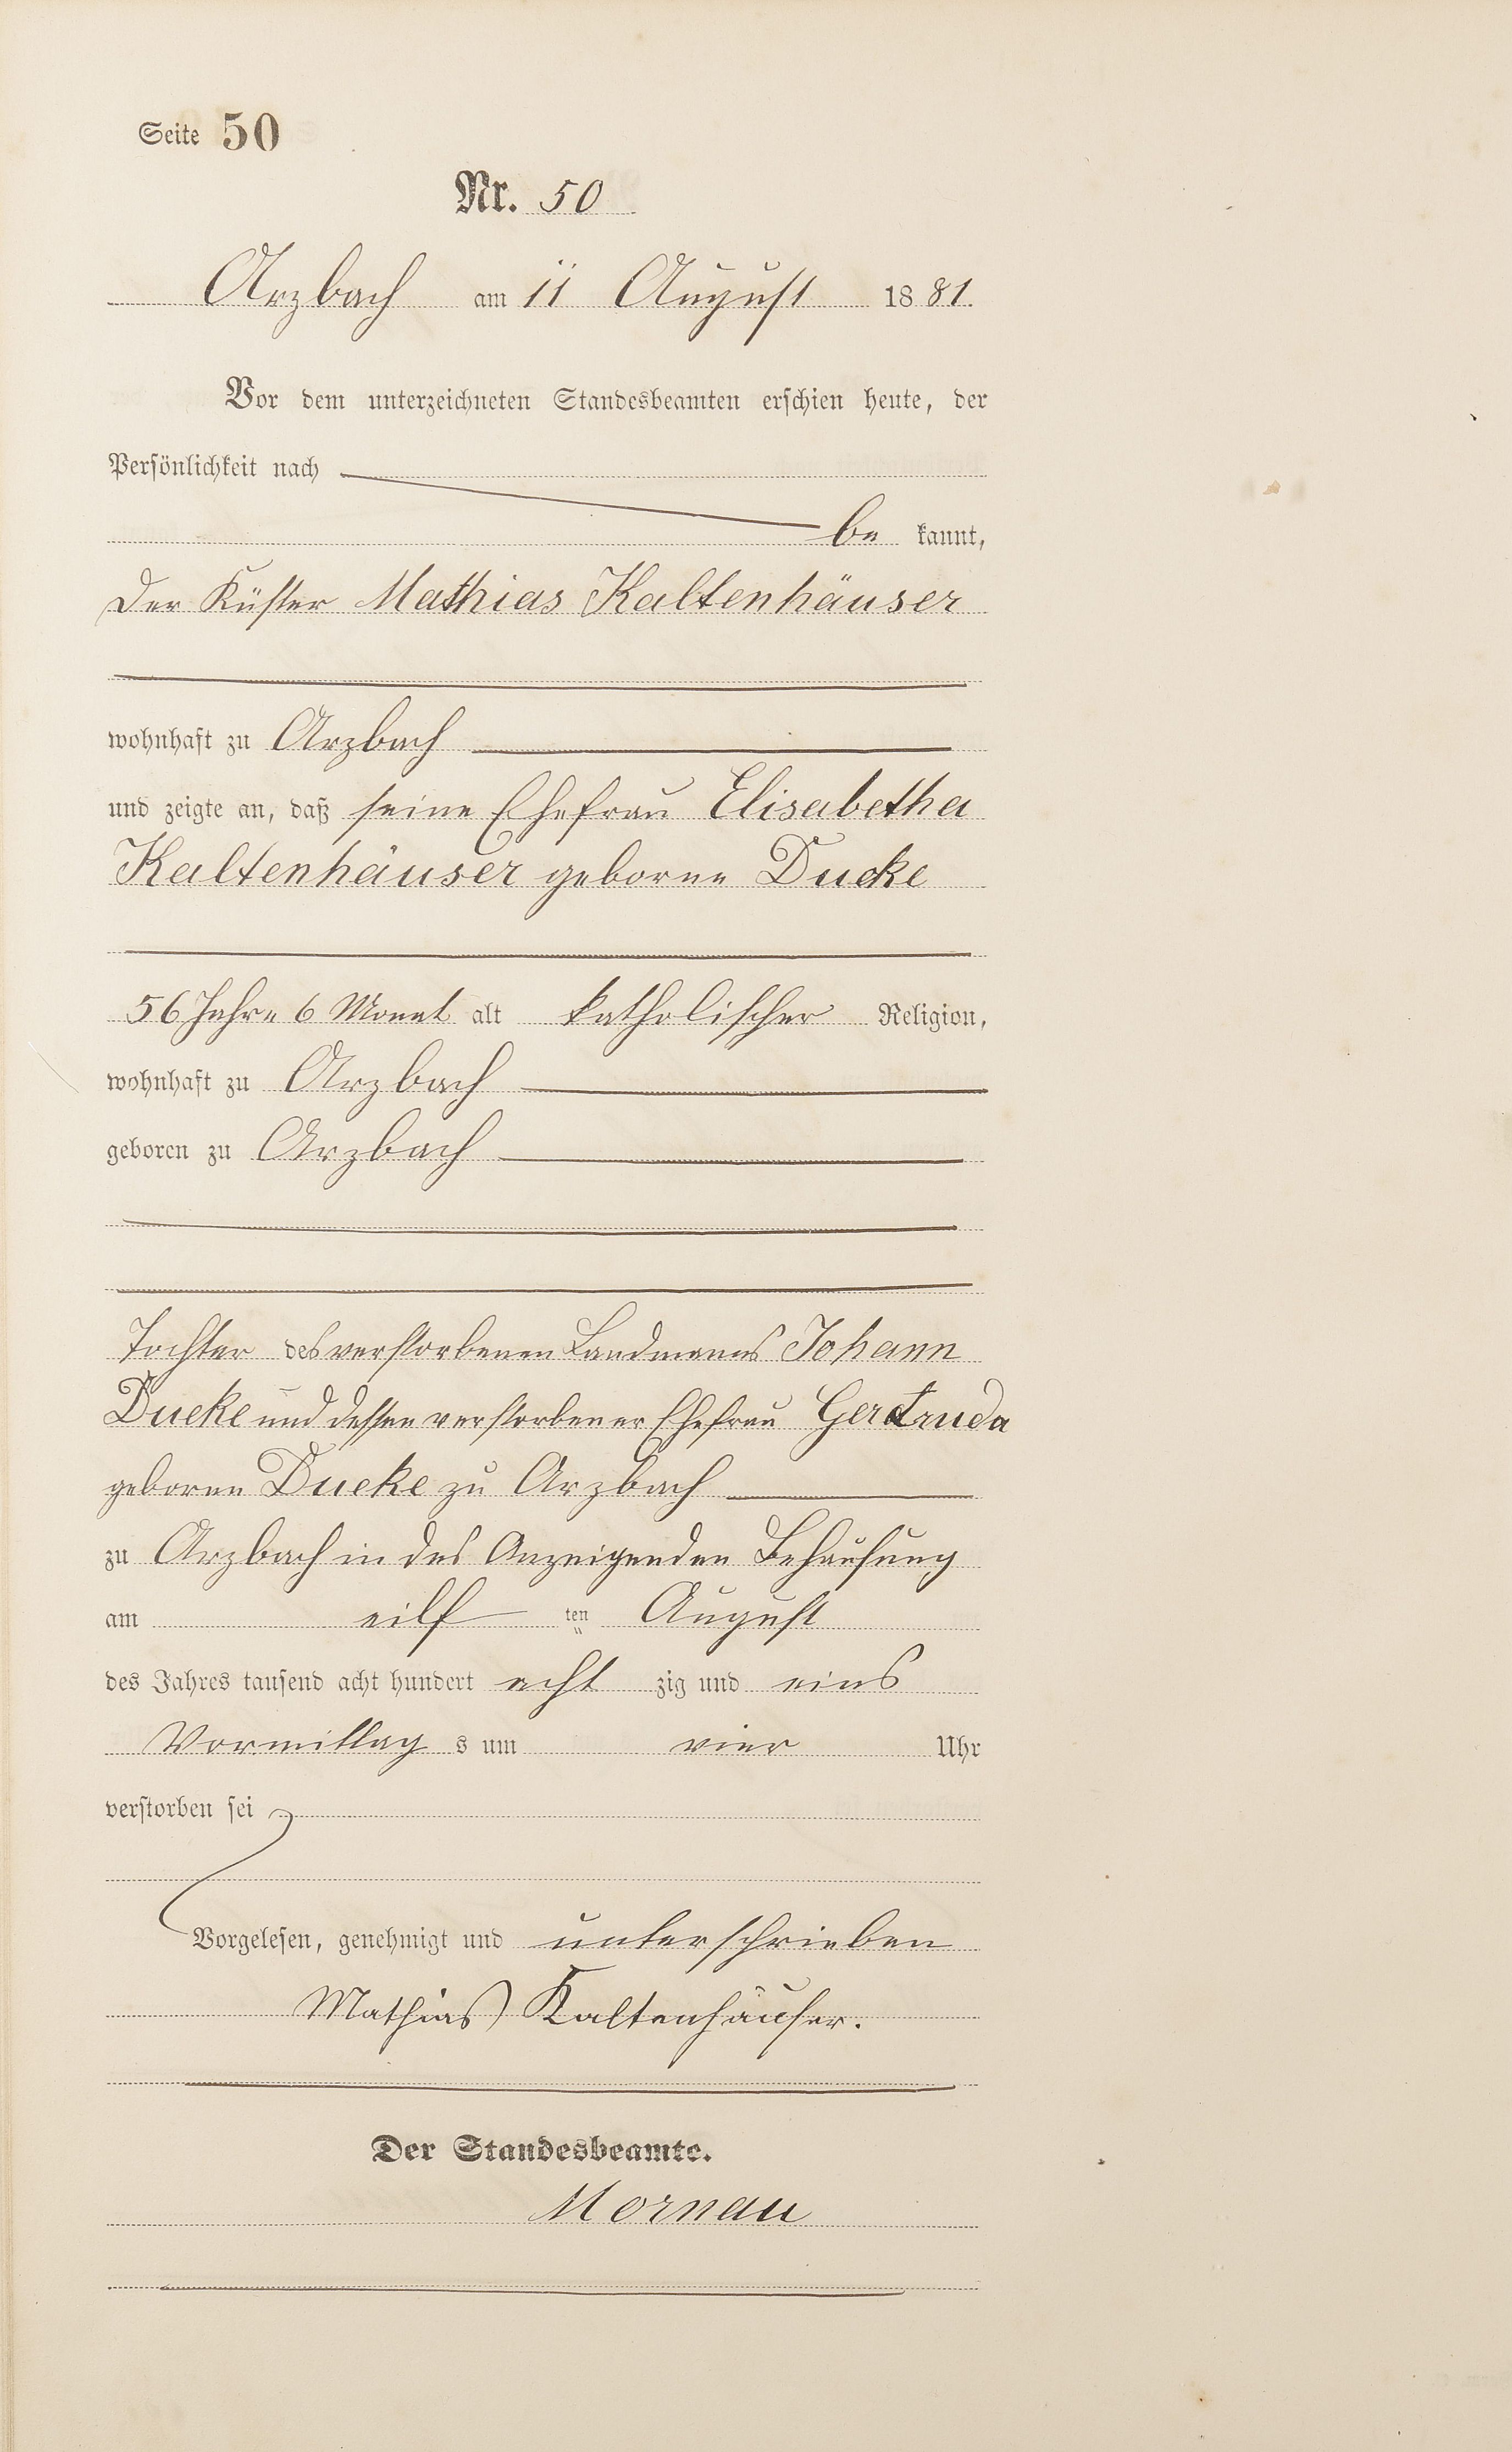 Seite 50
Nr. 50
Arzbach am 11 August 1881.
Vor dem unterzeichneten Standesbeamten erschien heute, der
Persönlichkeit nach
be kannt,
der Küster Mathias Kaltenhäuser
wohnhaft zu Arzbach
und zeigte an, daß seine Ehefrau Elisabetha
Kaltenhäuser geborne Ducke
56 Jahre 6 Monat alt katholischer Religion,
wohnhaft zu Arzbach
geboren zu Arzbach
Tochter des verstorbenen Landmanns Johann
Ducke und dessen verstorbener Ehefrau Gertruda
geborne Ducke zu Arzbach
zu Arzbach in des Anzeigenden Behausung
am eilf ten August
des Jahres tausend acht hundert acht zig und eins
Vormittag s um vier Uhr
verstorben sei
Vorgelesen, genehmigt und unterschrieben
Mathias Kaltenhäuser.
Der Standesbeamte.
Mornau